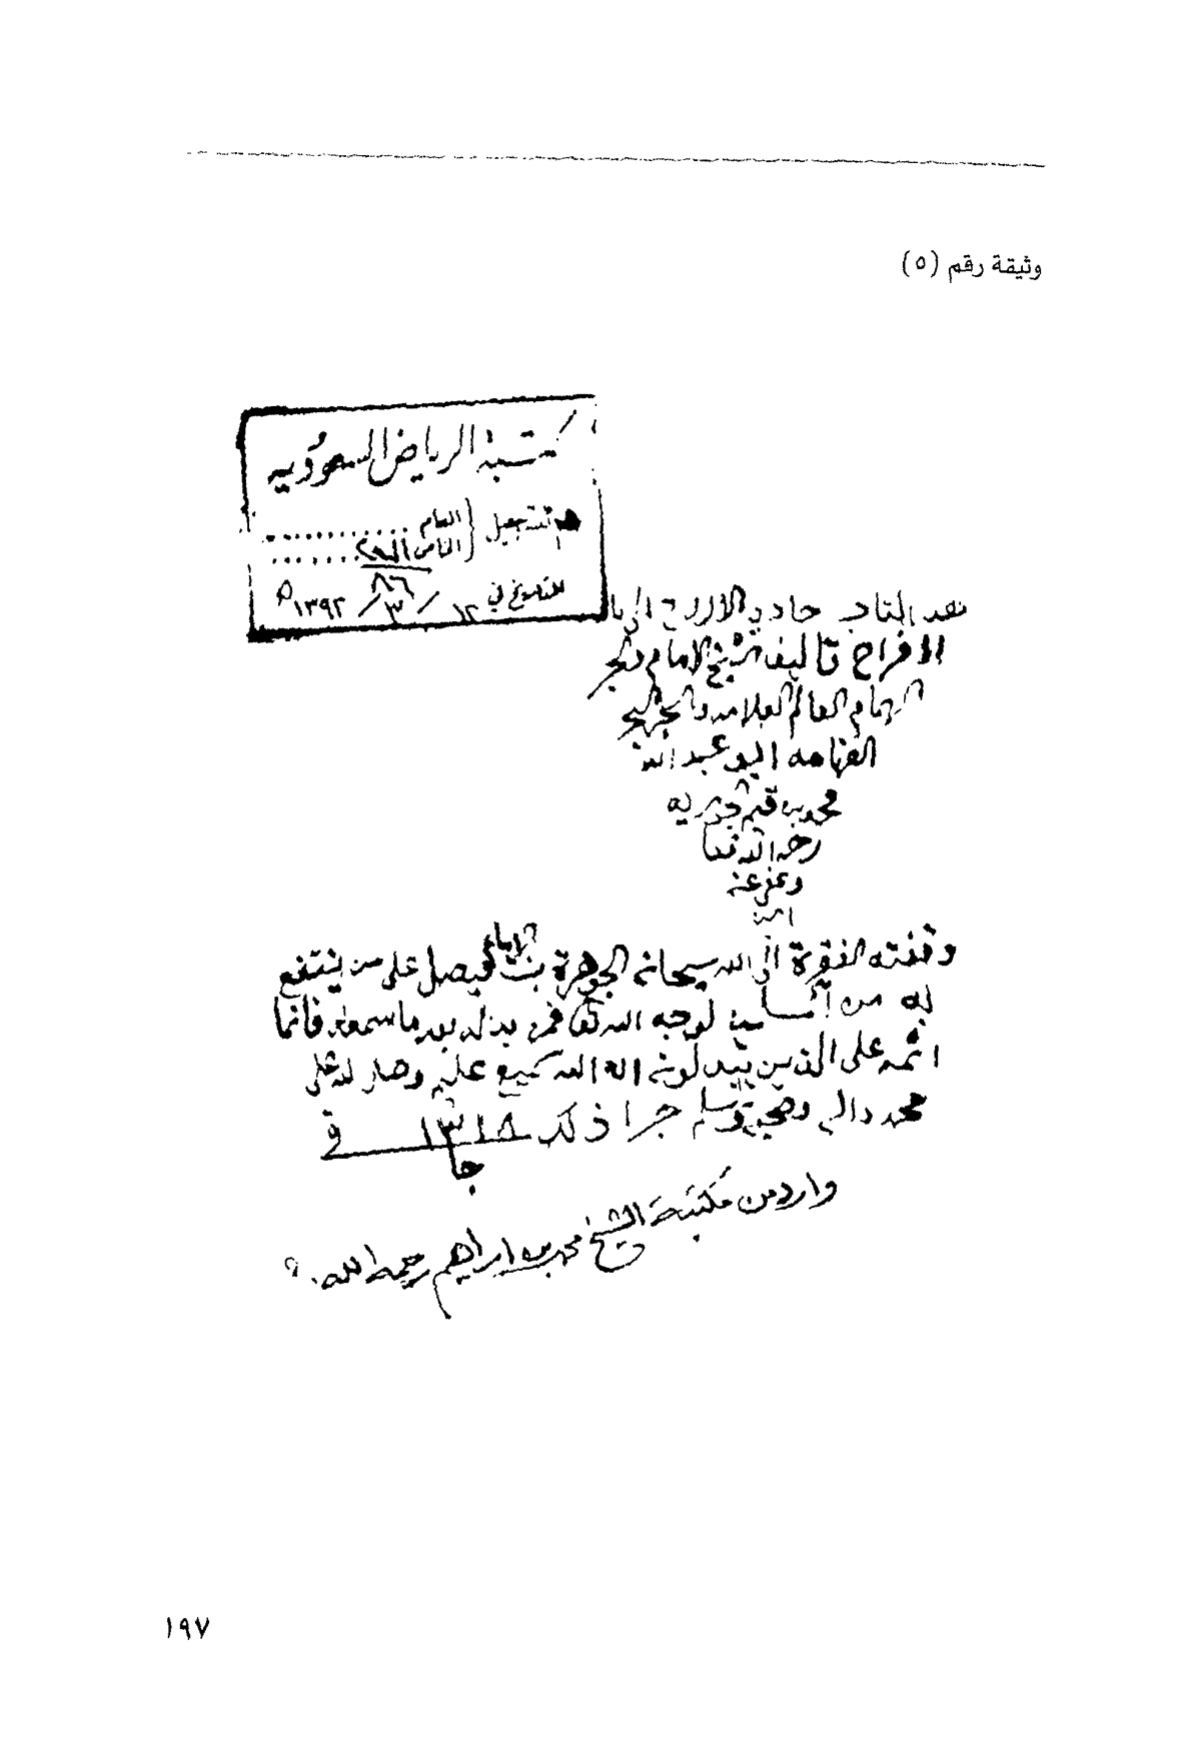 وثيقة رقم (٥)
مكتبة الرياض السعودية
التسجيل العام
الخاص
٨٦
التاريخ في ١٢ / ٣ / ١٣٩٢ ھ
هذا الكتاب حادي الارواح الى
الافراح تأليف الشيخ الامام والحبر
الهمام العالم العلامه والبحر
الفهامه ابو عبد الله
محمد بن قيم الجوزيه
رحمه الله تعا
وعفى عنه
امين
وقفته الفقيرة الى الله سبحانه الجوهرة بنت الامام فيصل على من ينتفع
به من لوجه الله تعا فمن بدله بعد ما سمعه فانما
اثمه على الذين يبدلونه ان الله سميع عليم وصلى الله على
محمد واله وصحبه وسلم جرا ذلك في ١٣١٨
جا
وارد من مكتبة الشيخ محمد بن ابراهيم رحمه الله
١٩٧